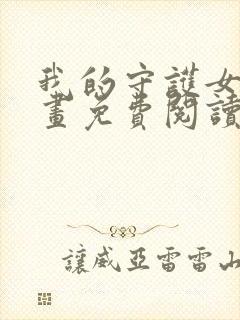 我的守護女
畫免費閱讀
讓威亞雷雷山